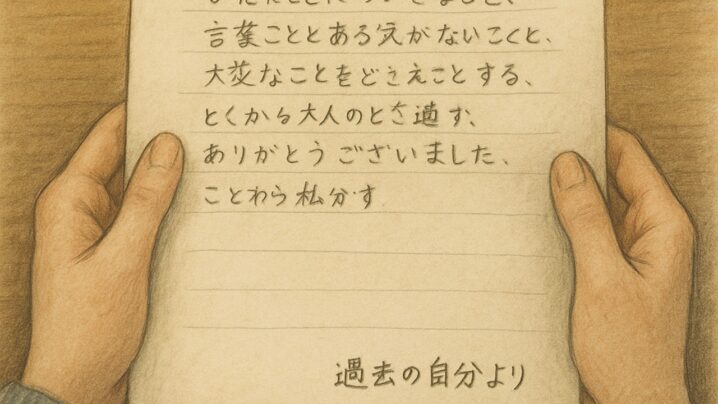 言葉こととある気がないこくと、
大変なことをどさえことする、
とくかる大人のとき過す、
ありがとうございました、
ことわら私分す
過去の自分より